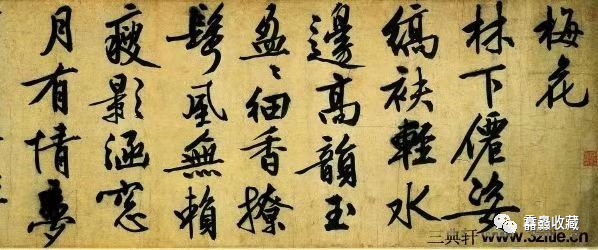 梅花
林下僊姿
縞袂輕水
邊高韻玉
盈〻細香撩
鬢風無賴
瘦影涵窓
月有情夢
收藏
三典轩